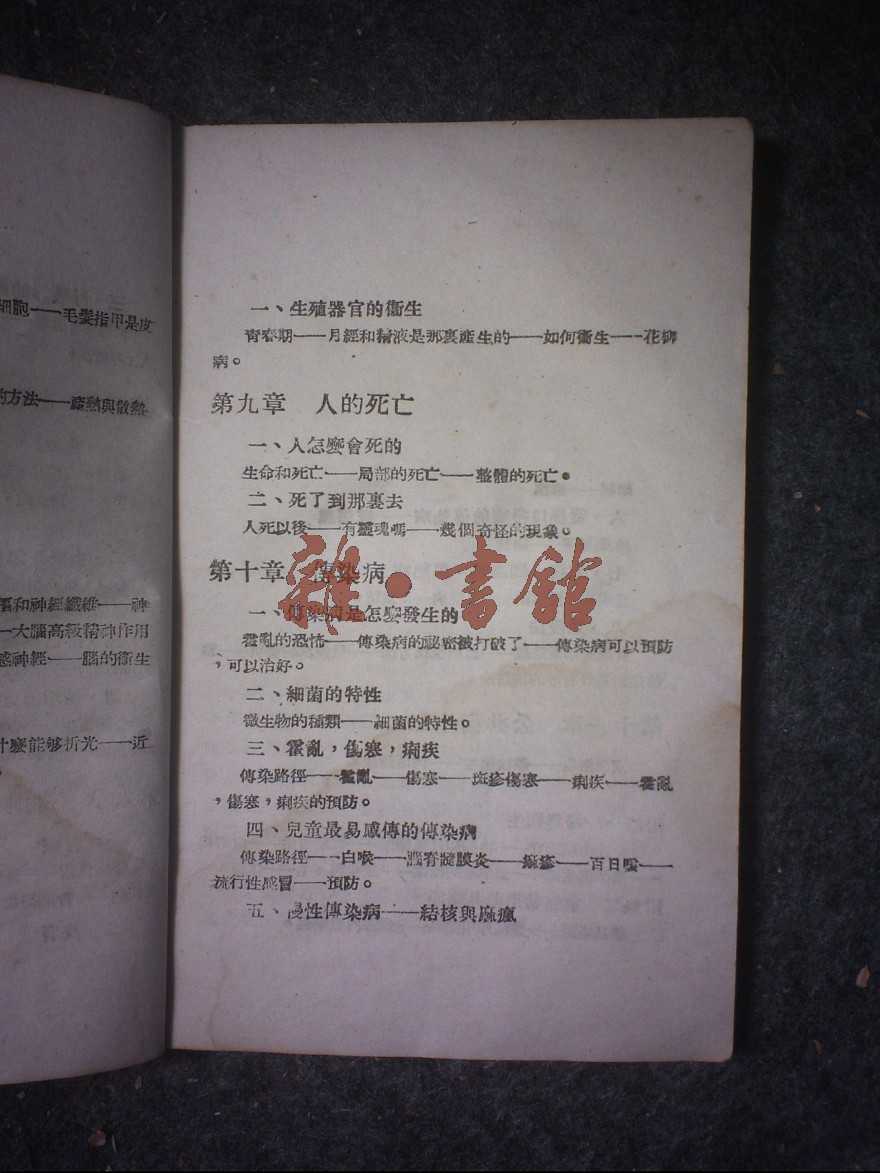 細胞——毛髮指甲是皮
的方法——產熱與散熱
樞和神經纖維——神
—大腦高級精神作用
感神經——腦的衞生
什麼能够折光——近
一、生殖器官的衞生
青春期——月經和精液是那裏產生的——如何衞生——花柳
病。
第九章　人的死亡
一、人怎麼會死的
生命和死亡——局部的死亡——整體的死亡。
二、死了到那裏去
人死以後——有靈魂嗎——幾個奇怪的現象。
第十章　傳染病
雜·書館
一、傳染病是怎麼發生的
霍亂的恐怖——傳染病的祕密被打破了——傳染病可以預防
，可以治好。
二、細菌的特性
微生物的種類——細菌的特性。
三、霍亂，傷寒，痢疾
傳染路徑——霍亂——傷寒——斑疹傷寒——痢疾——霍亂
，傷寒，痢疾的預防。
四、兒童最易感傳的傳染病
傳染路徑——白喉——腦脊髓膜炎——痲疹——百日咳——
流行性感冒——預防。
五、慢性傳染病——結核與麻瘋